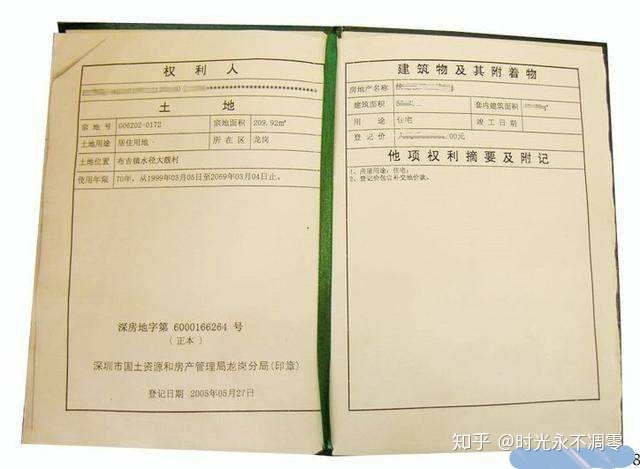 权利人
土地
宗地号 G06202-0172 宗地面积 209.92m²
土地用途 居住用地 所在区 龙岗
土地位置 布吉镇水径大靓村
使用年限 70年，从1999年03月05日至2069年03月04日止。
深房地字第 6000166264 号
（正本）
深圳市国土资源和房产管理局龙岗分局(印章)
登记日期 2005年05月27日
建筑物及其附着物
房地产名称
建筑面积 套内建筑面积
用途 住宅 竣工日期
登记价 00元
他项权利摘要及附记
1、房屋用途：住宅；
2、登记价包含补交地价款。
知乎 @时光永不凋零